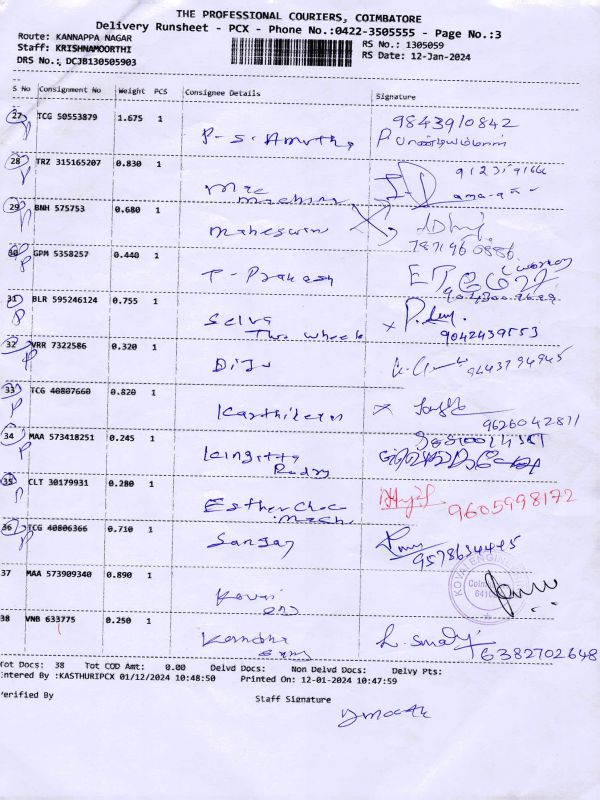 THE PROFESSIONAL COURIERS, COIMBATORE
Delivery Runsheet - PCX - Phone No.:0422-3505555 - Page No.:3
Route: KANNAPPA NAGAR
RS No.: 1305059
Staff: KRISHNAMOORTHI
RS Date: 12-Jan-2024
DRS No.: DCJB130505903
S No Consignment No Weight PCS Consignee Details Signature
27 TCG 50553879 1.675 1
9843910842
P-S. Amirtha
28 TRZ 315165207 0.830 1
29 BNH 575753 0.680 1
maheswari
7871960886
30 GPM 5358257 0.440 1
T- Prakash
31 BLR 595246124 0.755 1
Selva
Thru wheels
9042439553
32 VRR 7322586 0.320 1
Diju
9443794945
33 TCG 40807660 0.820 1
Karthikeyan
9626042811
34 MAA 573418251 0.245 1
35 CLT 30179931 0.280 1
Esther Chac
mech
9605998172
36 TCG 40806366 0.710 1
Sanjay
9578634445
37 MAA 573909340 0.890 1
Kovai
KOVAI ENGIN
38 VNB 633775 0.250 1
Kandha
6382702648
Tot Docs: 38 Tot COD Amt: 0.00 Delvd Docs: Non Delvd Docs: Delvy Pts:
Entered By :KASTHURIPCX 01/12/2024 10:48:50 Printed On: 12-01-2024 10:47:59
Verified By Staff Signature